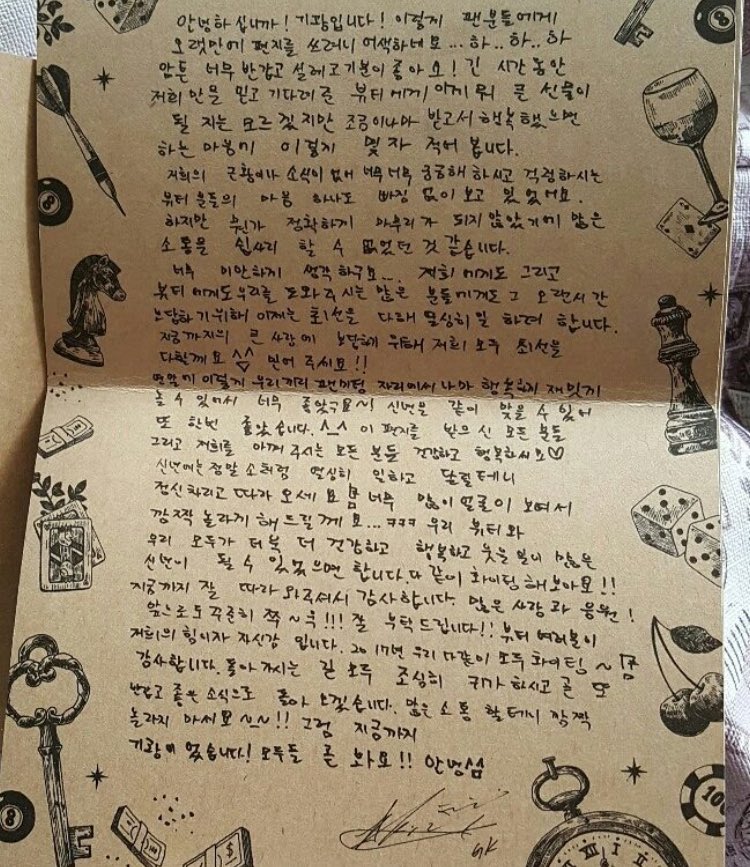 안녕하십니까! 기광입니다! 이렇게 팬분들에게
오랫만에 편지를 쓰려니 어색하네요... 하.. 하.. 하
암튼 너무 반갑고 설레고 기분이 좋아요! 긴 시간 동안
저희만을 믿고 기다려준 뷰티에게 이게 뭐 큰 선물이
될 지는 모르겠지만 조금이나마 받고서 행복했으면
하는 마음에 이렇게 몇 자 적어 봅니다.
저희의 근황이나 소식이 없어 너무너무 궁금해 하시고 걱정하시는
뷰티분들의 마음 하나도 빠짐 없이 보고 있었어요.
하지만 뭔가 정확하게 마무리가 되지 않았기에 많은
소통을 쉽사리 할 수 없었던 것 같습니다.
너무 미안하게 생각하구요... 저희에게도 그리고
뷰티에게도 우리를 도와주시는 많은 분들에게도 그 오랜시간
보답하기위해 이제는 최선을 다해 열심히 일 하려 합니다.
지금까지의 큰 사랑에 보답하기 위해 저희 모두 최선을
다할께요 ^^ 믿어 주세요!!
연말에 이렇게 우리끼리 팬미팅 자리에서나마 행복하게 재밌게
놀 수 있어서 너무 좋았구요~! 신년을 같이 맞을 수 있어
또 한번 좋았습니다. ^_^ 이 편지를 받으신 모든 분들
그리고 저희를 아껴주시는 모든 분들 건강하고 행복하세요♡
신년에는 정말 소처럼 열심히 일하고 달릴테니
정신차리고 따라 오세요 너무 많이 얼굴이 보여서
깜짝 놀라게 해드릴께요... ㅋㅋㅋ 우리 뷰티와
우리 모두가 더욱 더 건강하고 행복하고 웃을 일이 많은
신년이 될 수 있었으면 합니다. 다 같이 화이팅 해보아요!!
지금까지 잘 따라 와주셔서 감사합니다. 많은 사랑과 응원!
앞으로도 꾸준히 쭉~욱!!! 잘 부탁드립니다!! 뷰티 여러분이
저희의 힘이자 자신감 입니다. 2017년 우리 다같이 모두 화이팅~
감사합니다. 돌아가시는 길 모두 조심히 귀가하시고 곧 또
반갑고 좋은 소식으로 돌아 오겠습니다. 많은 소통 할테니 깜짝
놀라지 마세요 ~_~!! 그럼 지금까지
기광이었습니다! 모두들 곧 봐요!! 안녕
GK
8
8
100
8
$